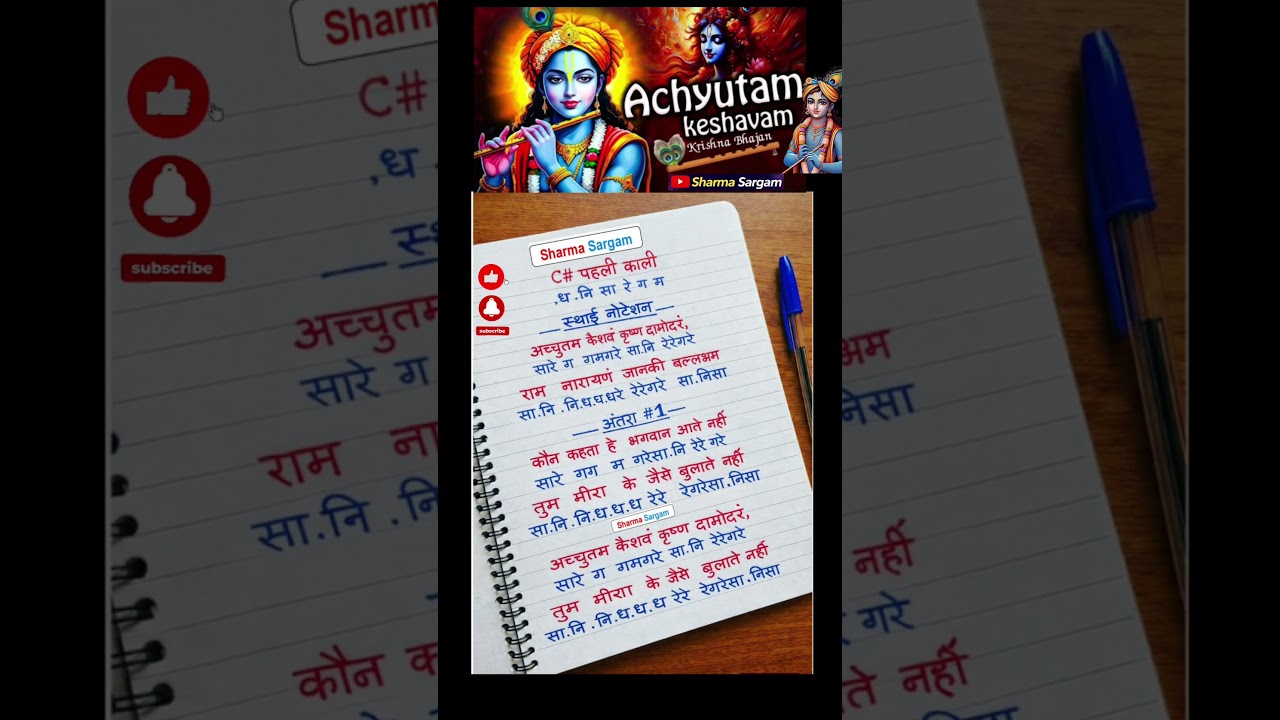 Achyutam
keshavam
Krishna Bhajan
Sharma Sargam
Sharma Sargam
C# पहली काली
,ध .नि सा रे ग म
स्थाई नोटेशन
subscribe
अच्चुतम कैशवं कृष्ण दामोदरं,
सारे ग गमगरे सा.नि रेरेगरे
राम नारायणं जानकी बल्लभम
सा.नि .नि.ध.ध.धरे रेरेगरे सा.निसा
अंतरा #1
कौन कहता हे भगवान आते नहीं
सारे गग म गरेसा.नि रेरे गरे
तुम मीरा के जैसे बुलाते नहीं
सा.नि.नि.ध.ध.ध रेरे रेगरेसा.निसा
Sharma Sargam
अच्चुतम कैशवं कृष्ण दामोदरं,
सारे ग गमगरे सा.नि रेरेगरे
तुम मीराा के जैसे बुलाते नहीं
सा.नि .नि.ध.ध.ध रेरे रेगरेसा.निसा
Sharm
C#
,ध
स्
subscribe
अच्चुतम
सारे ग
राम ना
सा.नि .नि
कौन क
भम
निसा
नहीं
गरे
ते नहीं